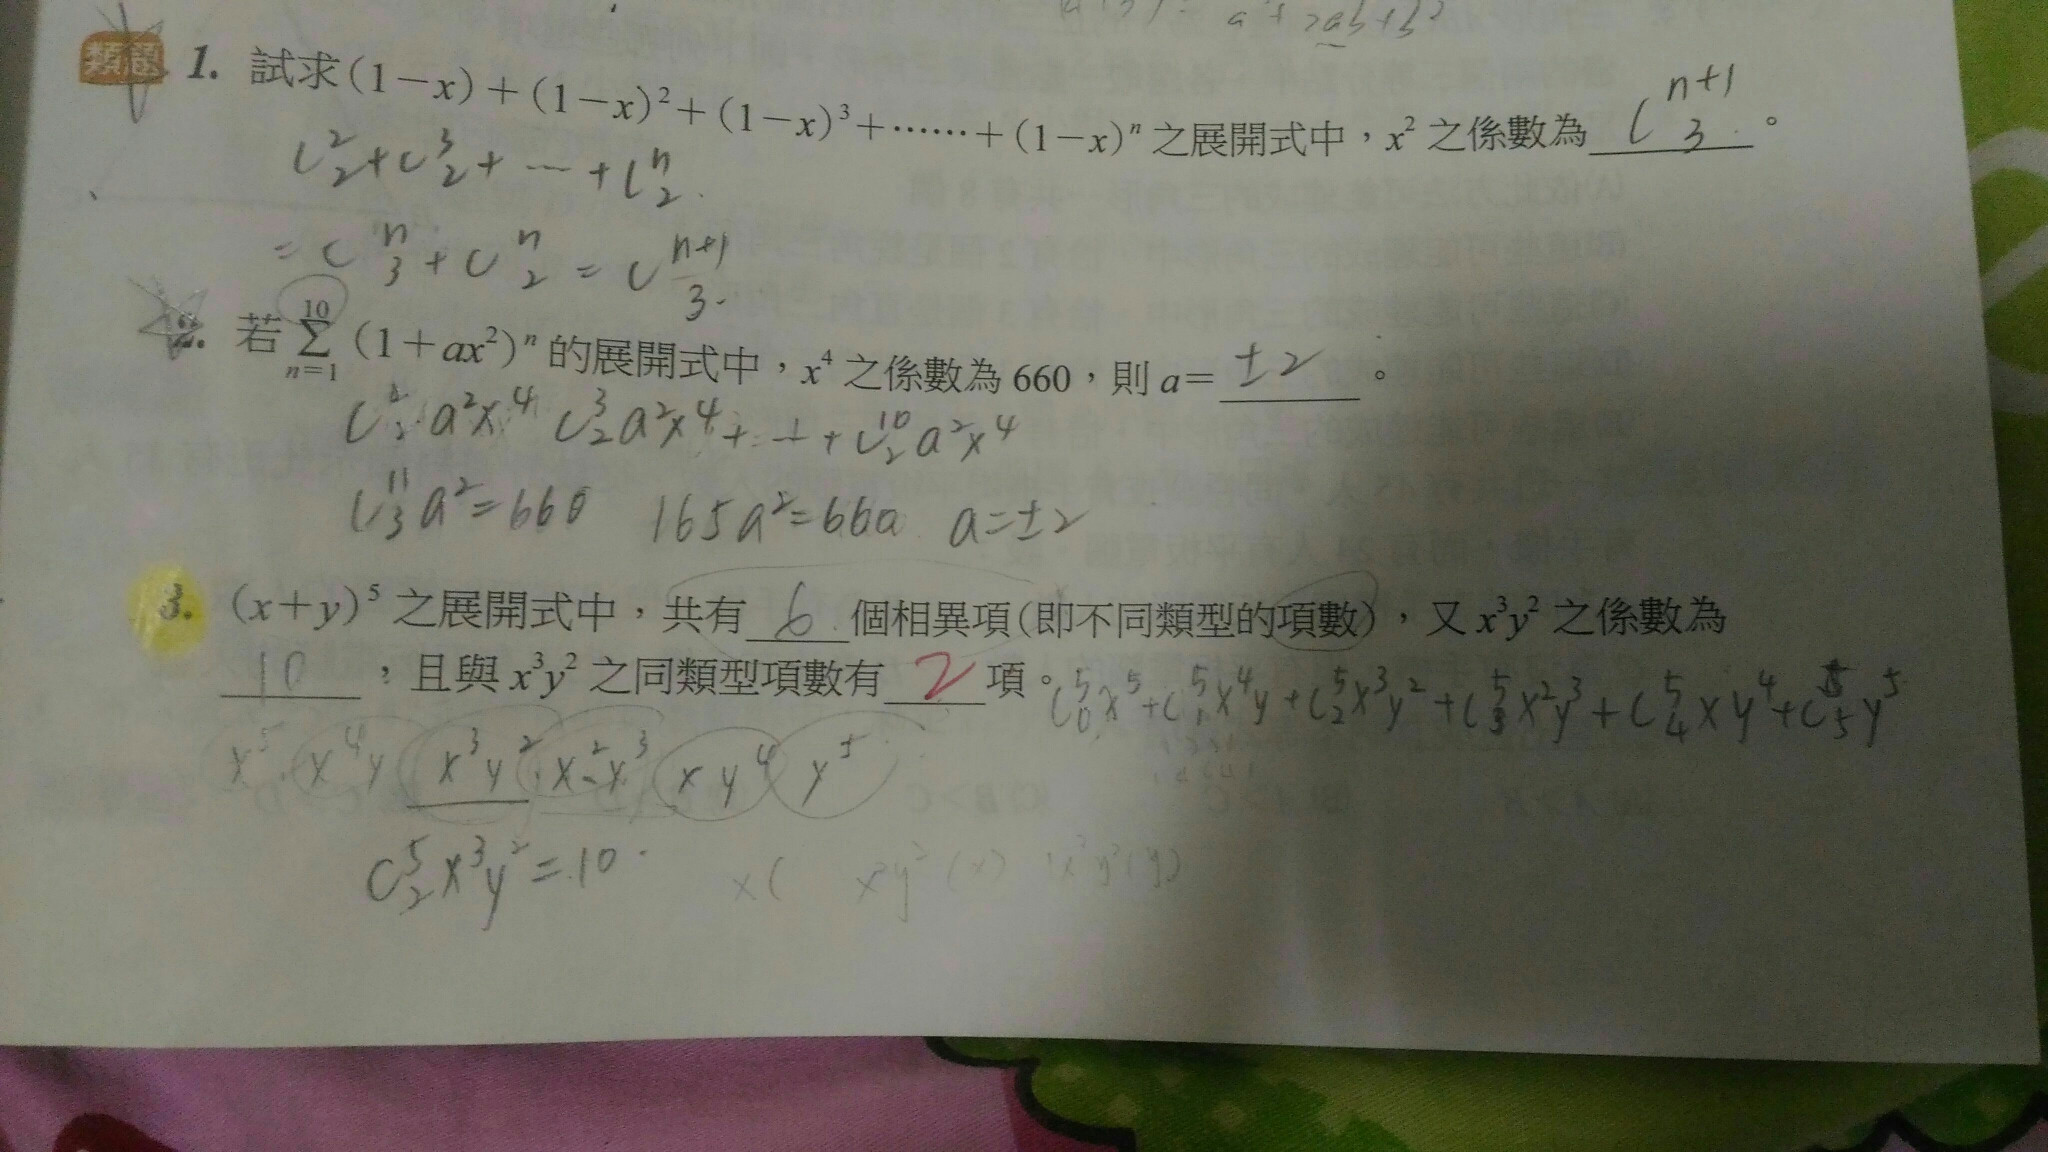 a² + 2ab + b²
類題 1. 試求(1-x)+(1-x)²+(1-x)³+……+(1-x)ⁿ之展開式中，x²之係數為 C^{n+1}_3 。
C^2_2+C^3_2+…+C^n_2.
=C^n_3+C^n_2=C^{n+1}_3.
2. 若 \sum_{n=1}^{10} (1+ax²)ⁿ的展開式中，x⁴之係數為660，則a= ±2 。
C^2_2 a²x⁴ C^3_2 a²x⁴+…+C^{10}_2 a²x⁴
C^{11}_3 a²=660 165a²=660 a=±2
3. (x+y)⁵之展開式中，共有 6 個相異項(即不同類型的項數)，又x³y²之係數為
10 ，且與x³y²之同類型項數有 2 項。
C^5_0x⁵+C^5_1x⁴y+C^5_2x³y²+C^5_3x²y³+C^5_4xy⁴+C^5_5y⁵
x⁵. x⁴y x³y² x²y³ xy⁴ y⁵
C^5_2x³y²=10